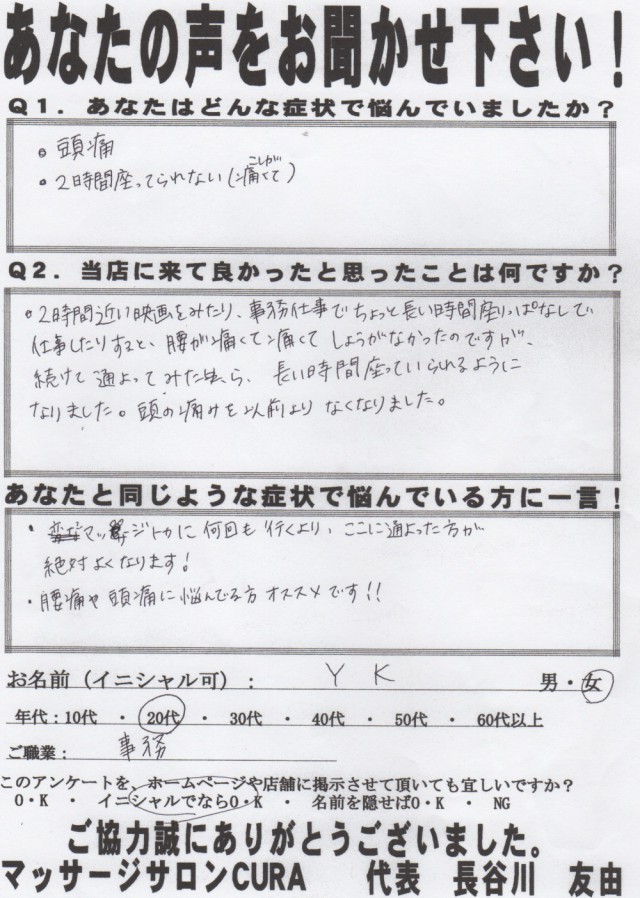 あなたの声をお聞かせ下さい！
Q1．あなたはどんな症状で悩んでいましたか？
・頭痛
・2時間座ってられない(こしが痛くて)
Q2．当店に来て良かったと思ったことは何ですか？
・2時間近い映画をみたり、事務仕事でちょっと長い時間座りっぱなしで
仕事したりすると、腰が痛くて痛くてしょうがなかったのですが、
続けて通よってみたら、長い時間座っていられるように
なりました。頭の痛みも以前よりなくなりました。
あなたと同じような症状で悩んでいる方に一言！
・マッサージトカに何回も行くより、ここに通よった方が
絶対よくなります！
・腰痛や頭痛に悩んでる方オススメです！！
お名前（イニシャル可）： Y K 男・女
年代：10代 ・ 20代 ・ 30代 ・ 40代 ・ 50代 ・ 60代以上
ご職業： 事務
このアンケートを、ホームページや店舗に掲示させて頂いても宜しいですか？
O・K ・ イニシャルでならO・K ・ 名前を隠せばO・K ・ NG
ご協力誠にありがとうございました。
マッサージサロンCURA 代表 長谷川 友由